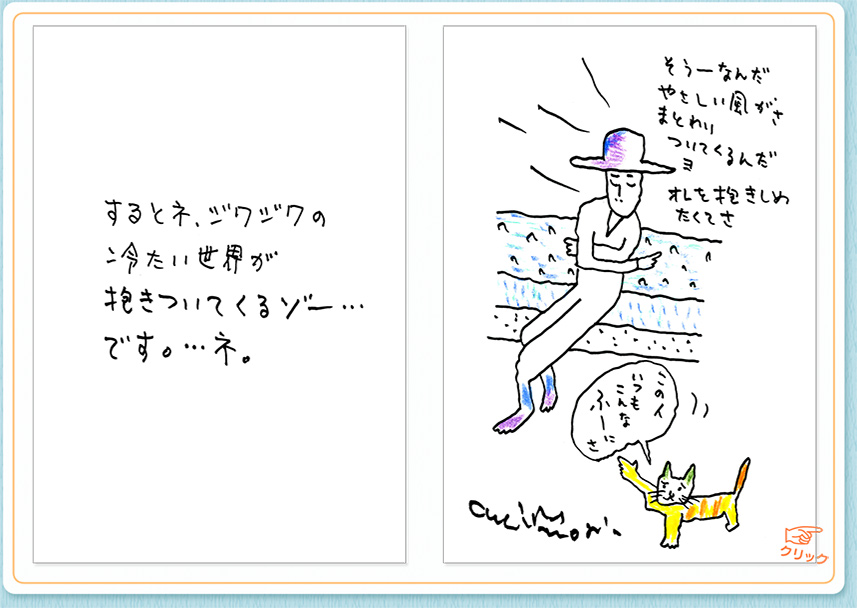 するとネ、ジワジワの
冷たい世界が
抱きついてくるゾー…
です。…ネ。
そうーなんだ
やさしい風がさ
まとわり
ついてくるんだ
ヨ
オレを抱きしめ
たくてさ
この人
いつも
こんな
ふーに
さ
クリック